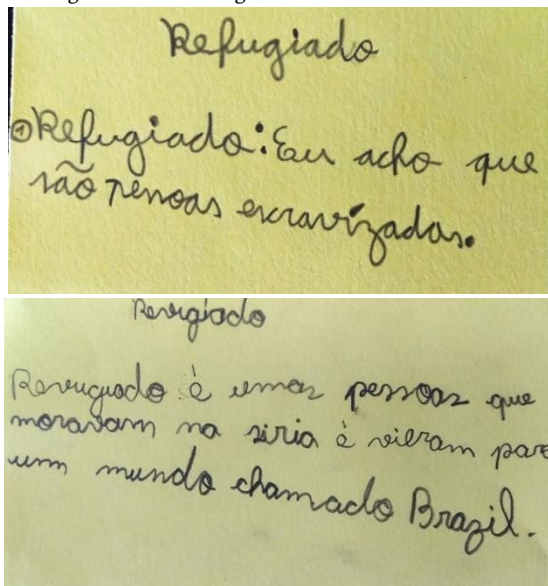 Refugiado
① Refugiado: Eu acho que
são pessoas escravizadas.
Revigiado
Revugiado è umas pessoas que
moravam na siria è vieram para
um mundo chamado Brazil.